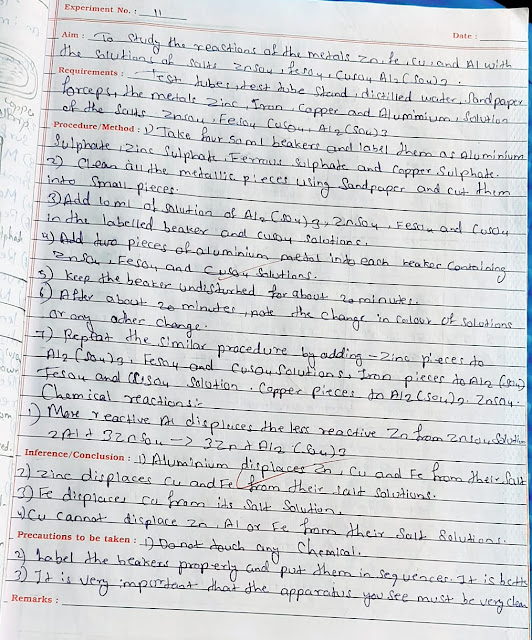 Experiment No. : 11
Date :
Aim : To study the reactions of the metals Zn, fe, Cu, and Al with
the solutions of salts ZnSo4, feso4, Cuso4 Al2(So4)3.
Requirements : Test tubes, test tube stand, distilled water, Sandpaper
forceps, the metals Zinc, Iron, Copper and Aluminium, Solution
of the Salts ZnSo4, FeSo4 CuSo4, Al2(So4)3
Procedure/Method : 1) Take four saml beakers and label them as Aluminium
Sulphate, Zinc Sulphate, Ferrous Sulphate and Copper Sulphate.
2) Clean all the metallic pieces using Sandpaper and cut them
into Small pieces.
3) Add 10 ml of Salution of Al2(so4)3, ZnSo4, Feso4 and Cuso4
in the labelled beaker and Cuso4 Solutions.
4) Add two pieces of aluminium metal into each beaker Containing
ZnSo4, FeSo4 and CuSo4 Solutions.
5) keep the beaker undisturbed for about 20 minutes.
6) After about 20 minutes, note the Change in Colour of Solutions
or any other Change.
7) Repeat the Similar procedure by adding - Zinc pieces to
Al2(So4)3, FeSo4 and Cuso4 Solutions, Iron pieces to Al2(So4)3
Feso4 and Solution. Copper pieces to Al2(So4)3. ZnSo4.
Chemical reactions:-
1) More reactive Al displaces the less reactive Zn from ZnSo4 Solution
2Al + 3ZnSo4 -> 3Zn + Al2(So4)3
Inference/Conclusion : 1) Aluminium displaces Zn, Cu and Fe from their Salt
2) Zinc displaces Cu and Fe from their Salt solutions.
3) Fe displaces Cu from its Salt Solution.
4) Cu Cannot displace Zn, Al or Fe from their Salt Solutions.
Precautions to be taken : 1) Do not touch any Chemical.
2) Label the beakers properly and put them in sequences. It is
3) It is very important that the apparatus you see must be very
Remarks :